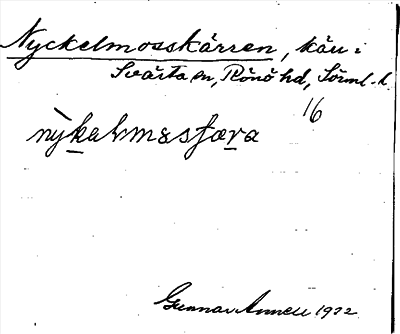 Nyckelmosskärren, kärr i
Svärta sn, Rönö hd, Sörml. l.
16
nỳkəlmɷsfæra
Gunnar Annell 1922